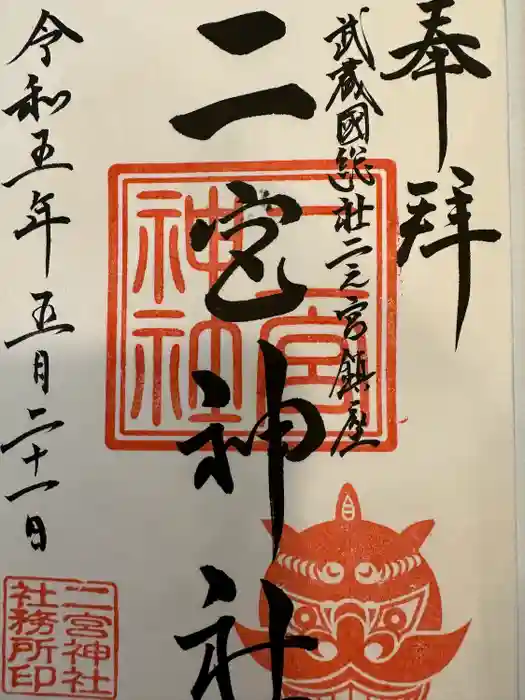 奉拝
武蔵國総社二之宮鎮座
二宮神社
二宮
神社
令和五年五月二十一日
二宮神社
社務所印